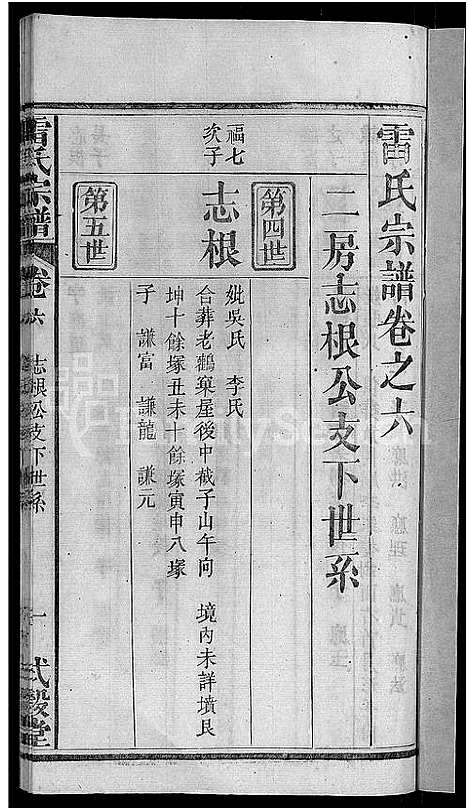 雷氏宗譜卷之六
二房志根公支下世系
第四世
福七
次子
志根
妣吳氏 李氏
合葬老鶴窠屋後中截子山午向 境內未詳墳艮
坤十餘塚丑未十餘塚寅申八塚
子 謙富 謙龍 謙元
第五世
雷氏宗譜 卷六 志根公支下世系 一 式穀堂